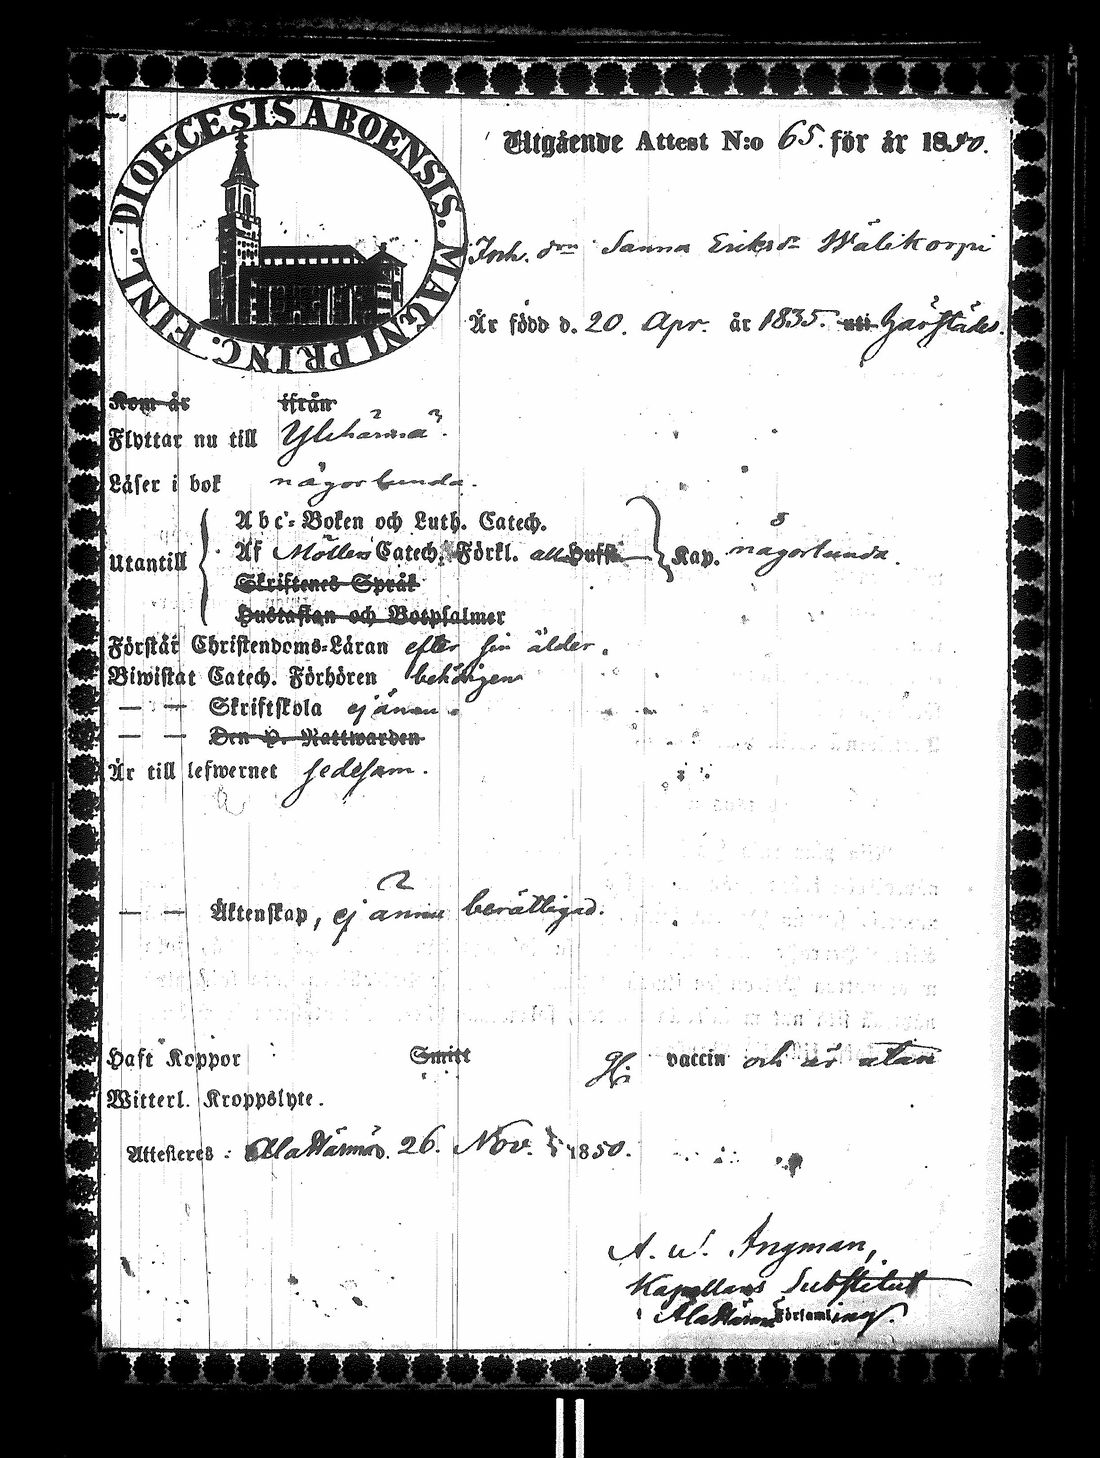 DIOECESIS ABOENSIS. MAGNI PRINC. FINL.
Utgående Attest N:o 65. för år 1850.
Inh. d:rn Sanna Eriksd:r Wälikorpi
Är född d. 20. Apr. år 1835. uti härstädes.
Kom år ifrån
Flyttar nu till Ylihärmä.
Läser i bok någorlunda.
Abc-Boken och Luth. Catech.
Utantill Af Möllers Catech. Förkl. alla Hufst. Kap. någorlunda.
Skriftenes Språk
Hustaflan och Botpsalmer
Förstår Christendoms-Läran efter sin ålder.
Biwistat Catech. Förhören behörigen
— — Skriftskola ej ännu.
— — Den H. Nattwarden
Är till lefwernet sedesam.
— — Äktenskap, ej ännu berättigad.
Haft Koppor Smitt vaccin och är utan
Witterl. Kroppslyte.
Attesteres: AlaHärmä d. 26. Nov. 1850.
A. W. Ingman,
Kapellans Substitut
i AlaHärmä Församling.